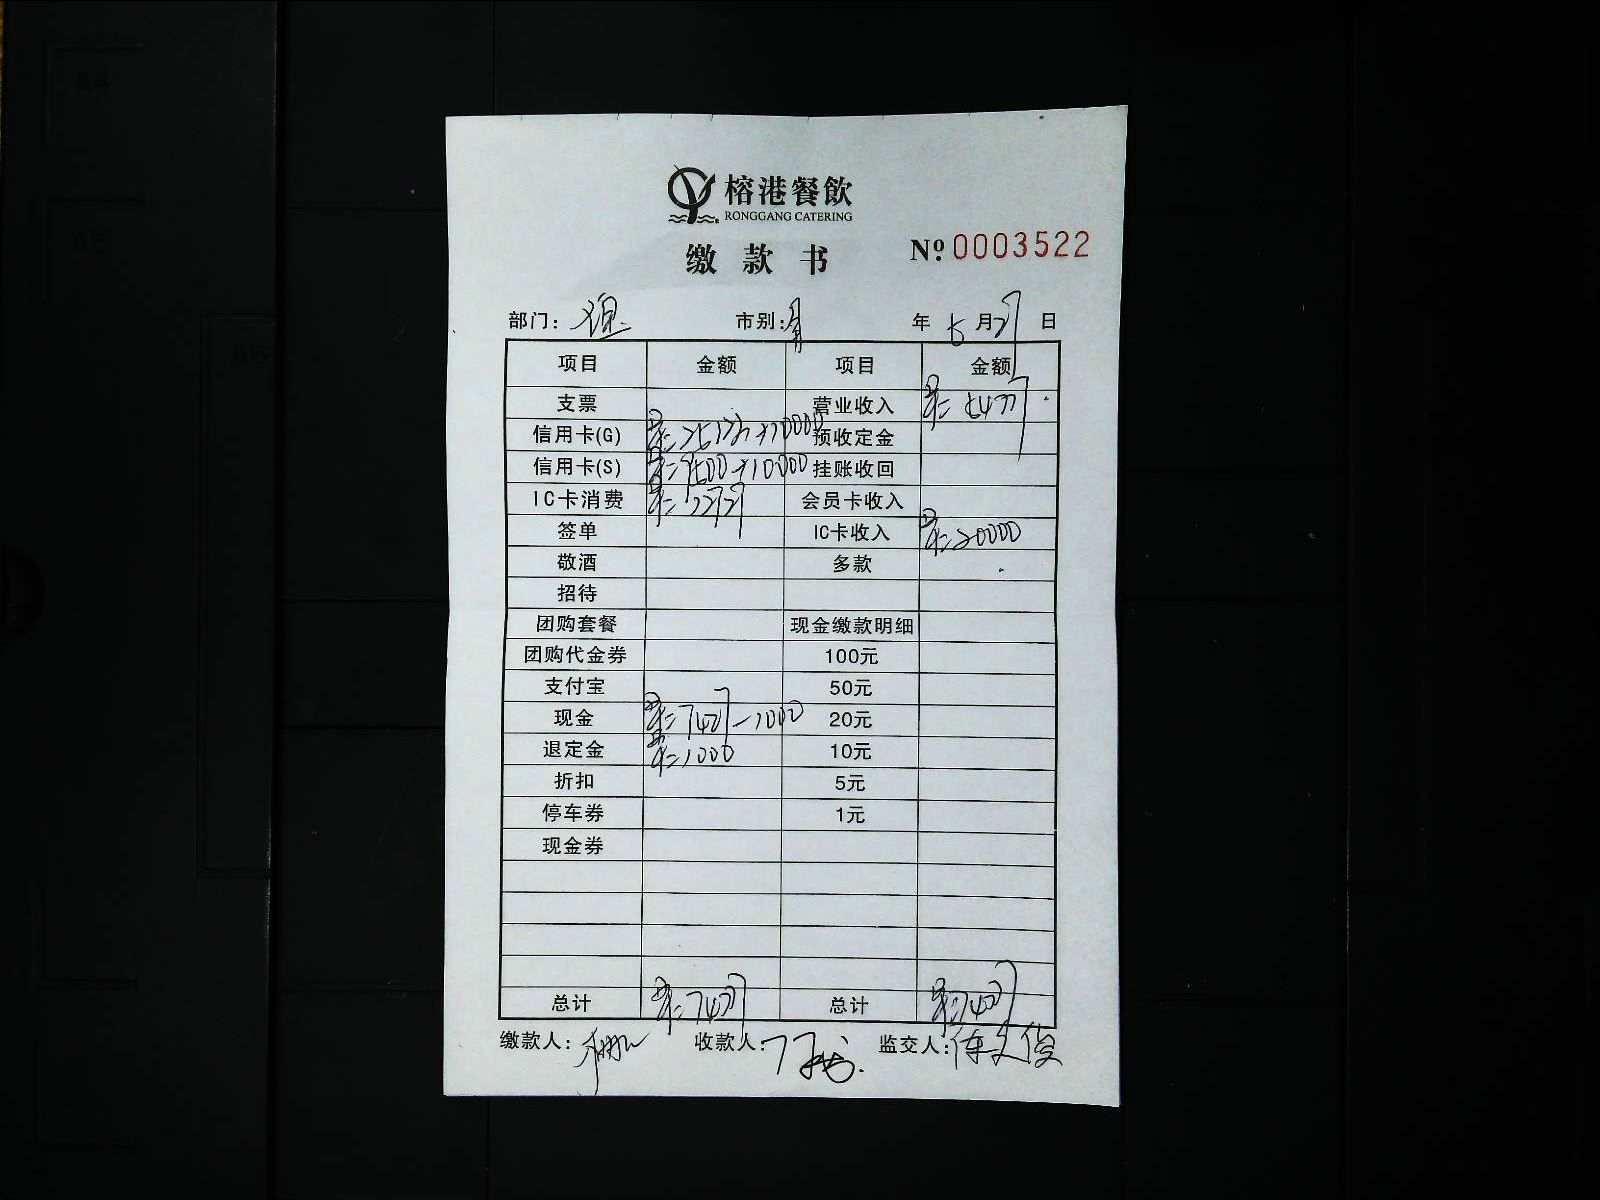 榕港餐飲
RONGGANG CATERING
缴款书 No. 0003522
部门: 市别: 年 5 月 日
项目 金额 项目 金额
支票 营业收入
信用卡(G) +10000 预收定金
信用卡(S) 9500+10000 挂账收回
IC卡消费 会员卡收入
签单 IC卡收入 20000
敬酒 多款
招待
团购套餐 现金缴款明细
团购代金券 100元
支付宝 50元
现金 -1000 20元
退定金 1000 10元
折扣 5元
停车券 1元
现金券
总计 总计
缴款人: 收款人: 监交人: